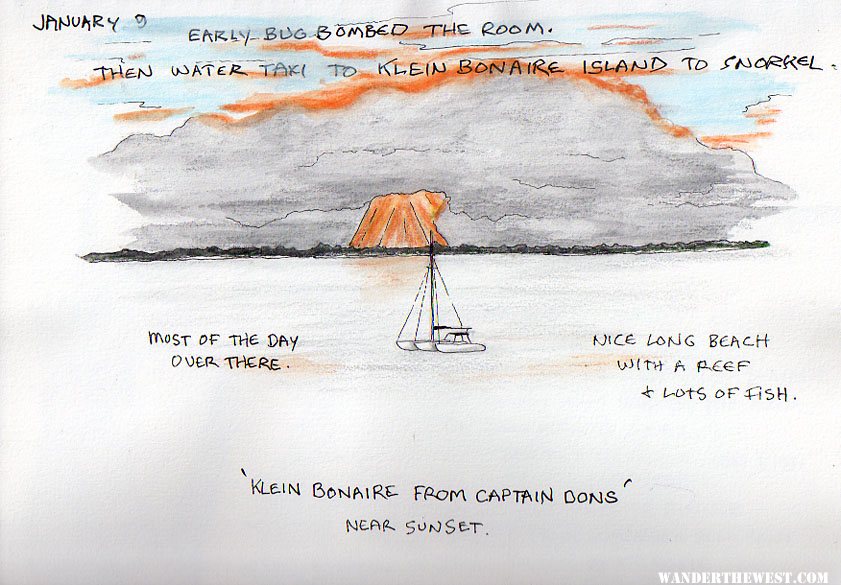 JANUARY 9
EARLY BUG BOMBED THE ROOM.
THEN WATER TAXI TO KLEIN BONAIRE ISLAND TO SNORKEL.
MOST OF THE DAY
OVER THERE.
NICE LONG BEACH
WITH A REEF
& LOTS OF FISH.
"KLEIN BONAIRE FROM CAPTAIN DONS"
NEAR SUNSET.
WANDERTHEWEST.COM